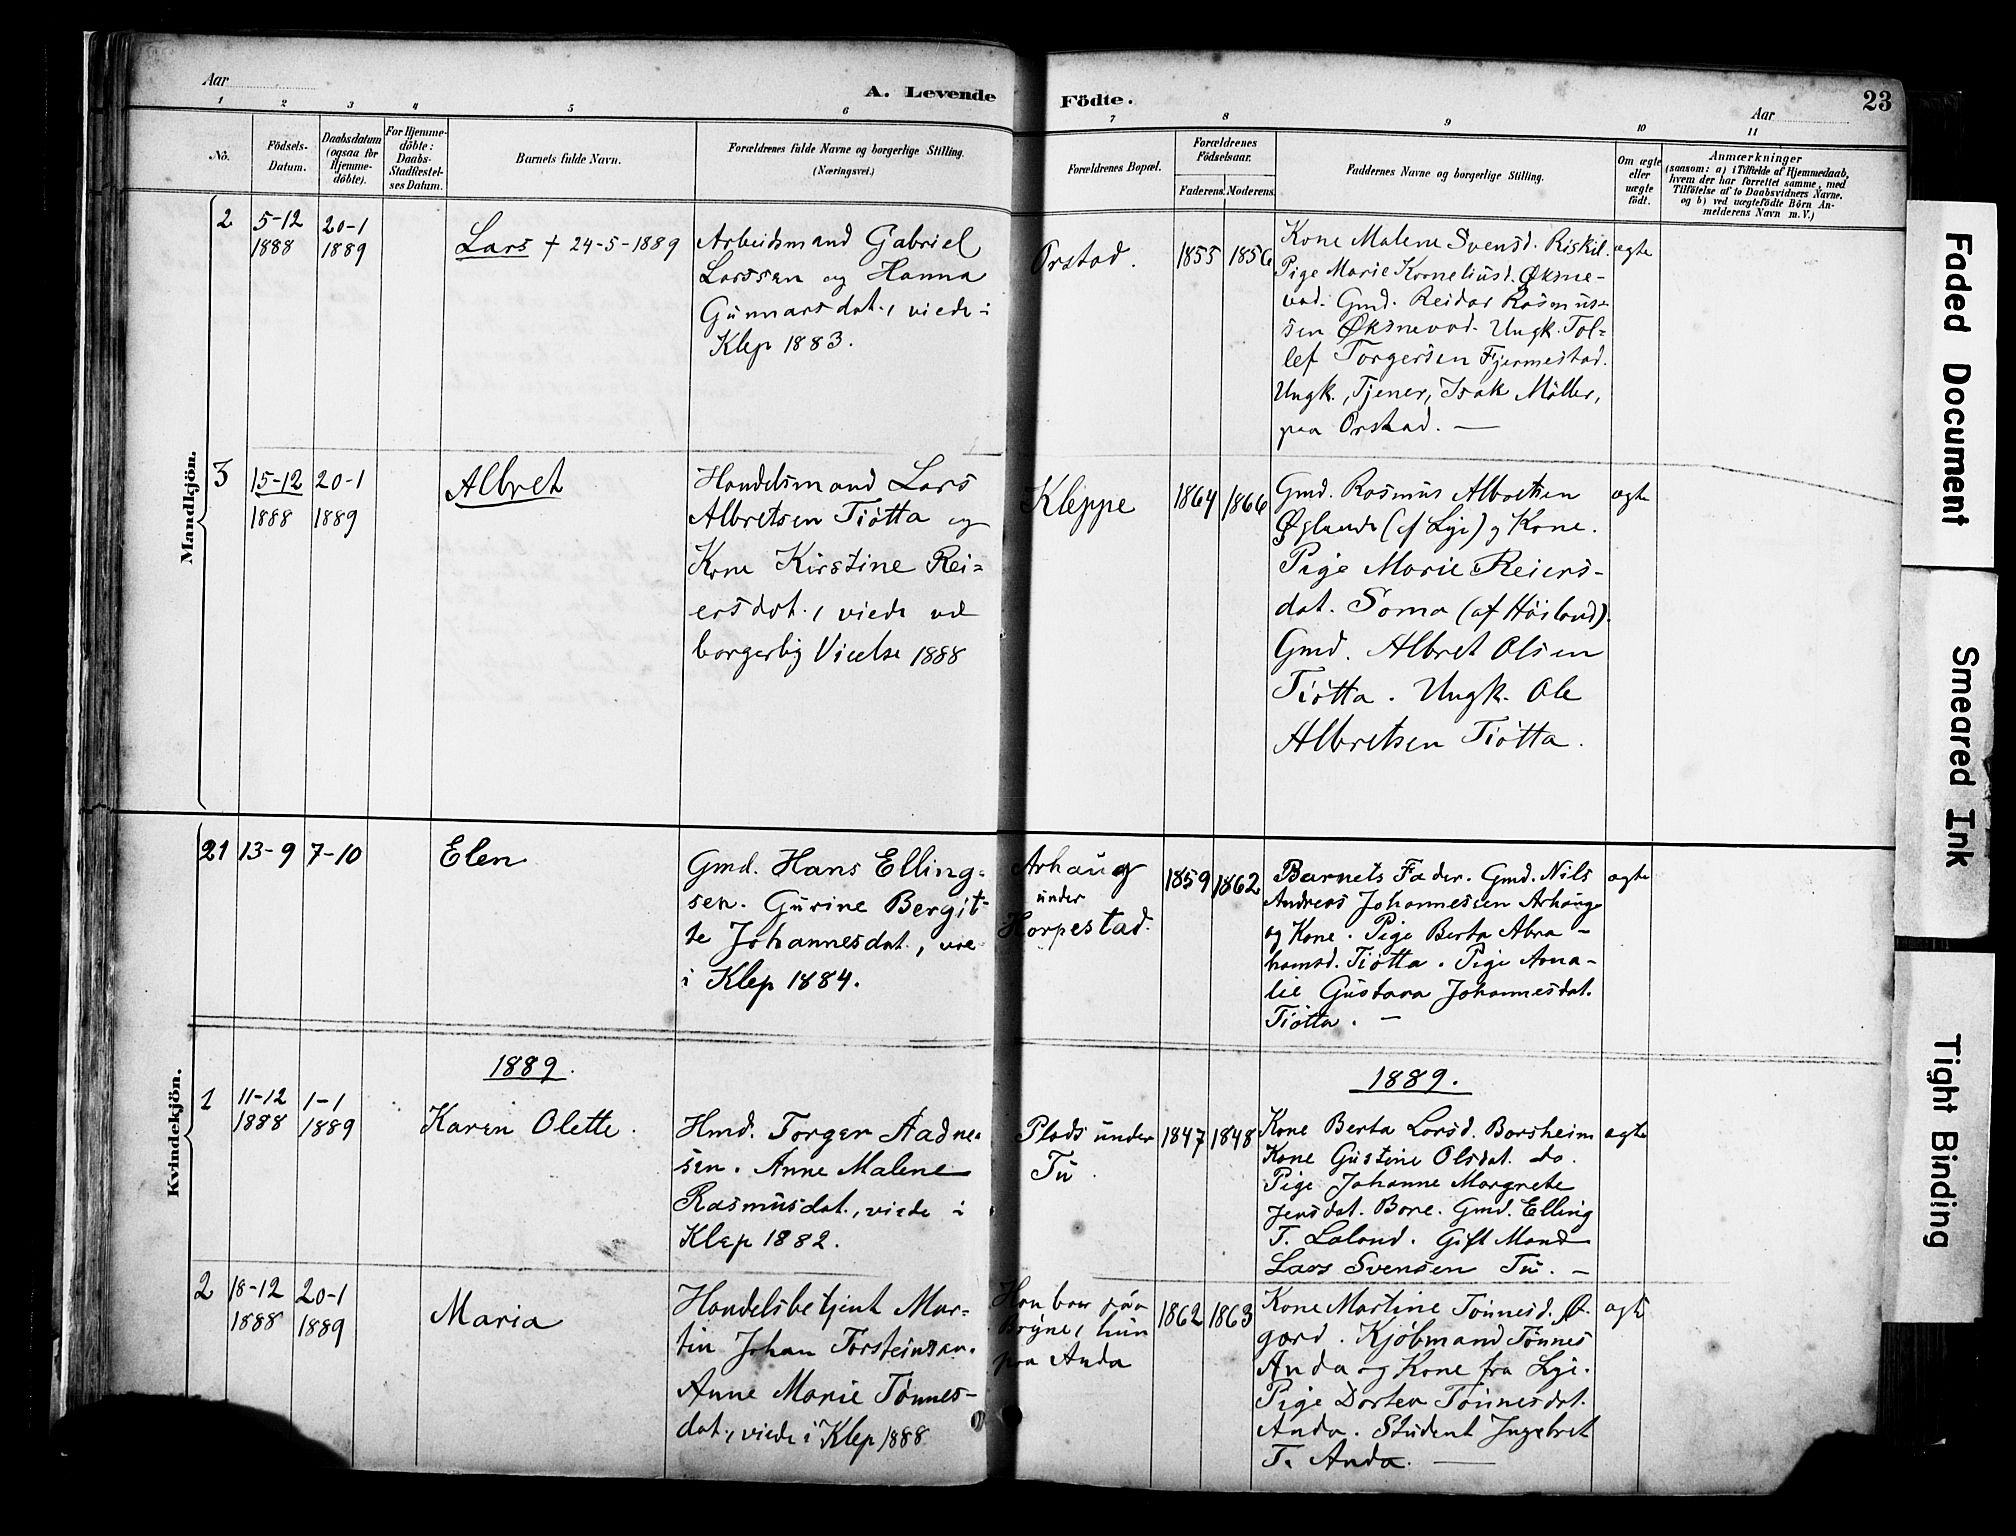 Aar
A. Levende Födte.
Aar
23
1 2 3 4 5 6 7 8 9 10 11
No.
Födsels-Datum.
Daabsdatum (ogsaa for Hjemme-döbte).
For Hjemme-döbte: Daabs-Stadfæstel-ses Datum.
Barnets fulde Navn.
Forældrenes fulde Navne og borgerlige Stilling. (Næringsvei.)
Forældrenes Bopæl.
Forældrenes Födselsaar.
Faderens. Moderens.
Faddernes Navne og borgerlige Stilling.
Om ægte eller uægte födt.
Anmærkninger
(saasom: a) i Tilfælde af Hjemmedaab,
hvem der har forrettet samme, med
Tilföielse af to Daabsvidners Navne,
og b) ved uægtefödte Börn An-
melderens Navn m. V.)
Mandkjön.
2
5-12
1888
20-1
1889
Lars † 24-5-1889
Arbeidsmand Gabriel
Larssen og Hanna
Gunnarsdat., viede i
Klep 1883.
Orstad.
1855
1856
Kone Malene Svensd. Riskil.
Pige Marie Korneliusd. Øksne-
vad. Gmd. Reidar Rasmus-
sen Øksnevad. Ungk. Tol-
lef Torgersen Fjermestad.
Ungk., Tjener, Isak Møller,
paa Orstad. —
ægte
3
15-12
1888
20-1
1889
Albret
Handelsmand Lars
Albretsen Tiøtta og
Kone Kirstine Rei-
ersdat., viede ved
borgerlig Vielse 1888
Kleppe
1864
1866
Gmd. Rasmus Albretsen
Øglænd (af Lye) og Kone.
Pige Marie Reiers-
dat. Soma (af Høiland).
Gmd. Albret Olsen
Tiøtta. Ungk. Ole
Albretsen Tiøtta.
ægte
Kvindekjön.
21
13-9
7-10
Elen
Gmd. Hans Elling-
sen. Gurine Bergit-
te Johannesdat.,
i Klep 1884.
Arhaug
under
Horpestad.
1859
1862
Barnets Fader. Gmd. Nils
Andreas Johannessen Arhaug
og Kone. Pige Berta Abra-
hamsd. Tiøtta. Pige Ama-
lie Gustava Johannesdat.
Tiøtta. —
ægte
1889.
1889.
1
11-12
1888
1-1
1889
Karen Olette.
Hmd. Torger Aadne-
sen. Anne Malene
Rasmusdat., viede i
Klep 1882.
Plads under
Tu.
1847
1848
Kone Berta Larsd. Borsheim
Kone Gustine Olsdat. do.
Pige Johanne Margrete
Jensdat. Bore. Gmd. Elling
T. Laland. Gift Mand
Lars Svensen Tu. —
ægte
2
18-12
1888
20-1
1889
Maria
Handelsbetjent Mar-
tin Johan Torsteinsen.
Anne Marie Tønnes-
dat., viede i Klep 1888
Han bor paa
Bryne, hun
paa Anda
1862
1863
Kone Martine Tønnesd. Ø-
gard. Kjøbmand Tønnes
Anda og Kone fra Lye.
Pige Dortea Tønnesdat.
Anda. Student Ingebret
T. Anda. —
ægte
Faded Document
Smeared Ink
Tight Binding